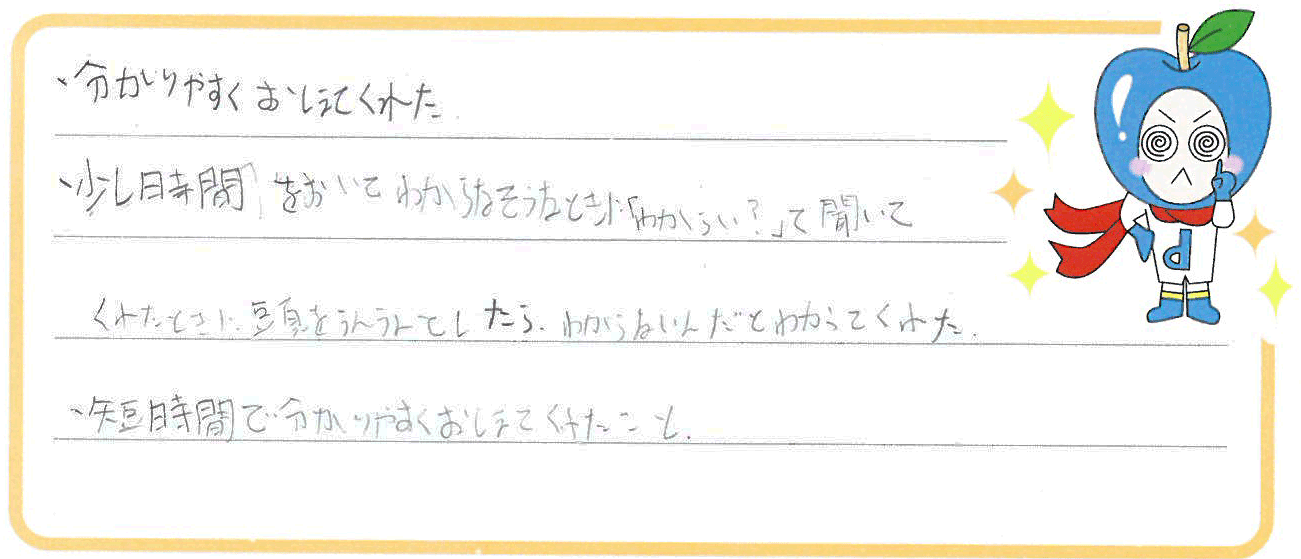 、分かりやすくおしえてくれた.
、少し時間をおいてわからなそうなときに「わからい？」って聞いて
くれたときに、頭をうんうんとしたら、わからないんだとわかってくれた.
、短時間で分かりやすくおしえてくれたこと.
d